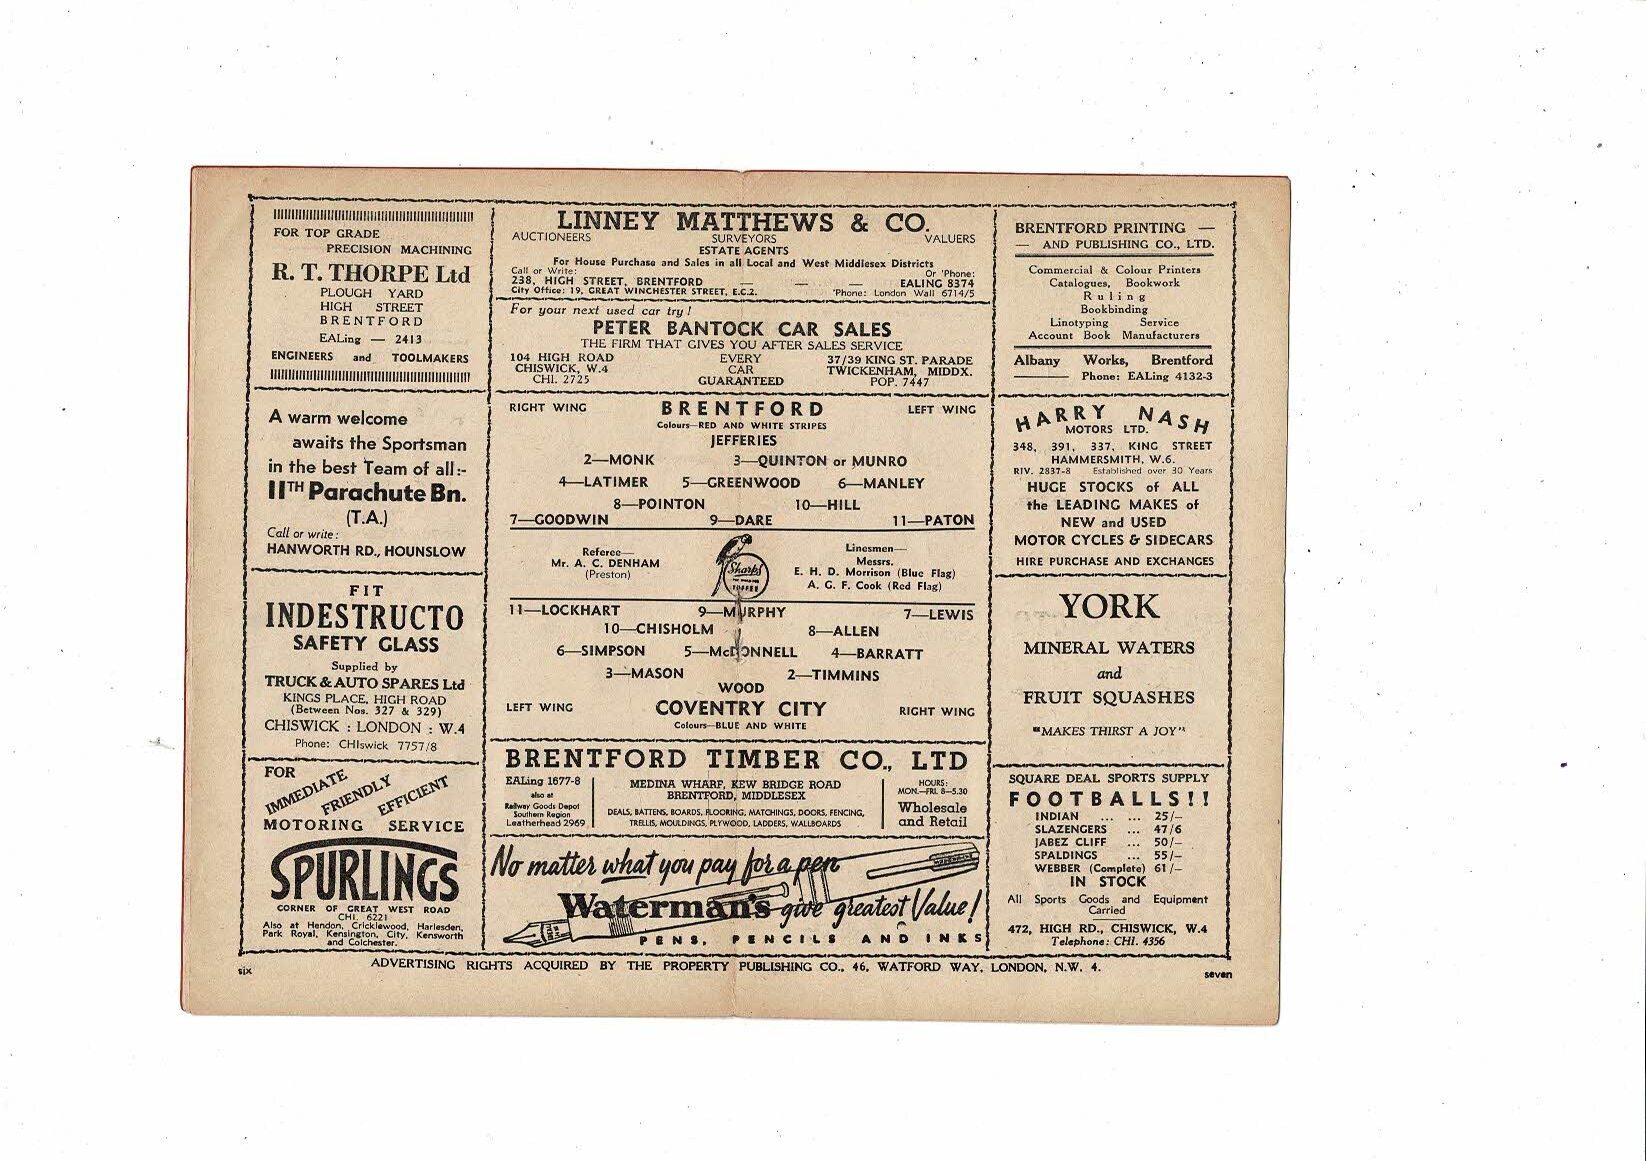 FOR TOP GRADE
PRECISION MACHINING
R. T. THORPE Ltd
PLOUGH YARD
HIGH STREET
BRENTFORD
EALing — 2413
ENGINEERS and TOOLMAKERS
A warm welcome
awaits the Sportsman
in the best Team of all:-
11TH Parachute Bn.
(T.A.)
Call or write:
HANWORTH RD., HOUNSLOW
FIT
INDESTRUCTO
SAFETY GLASS
Supplied by
TRUCK & AUTO SPARES Ltd
KINGS PLACE, HIGH ROAD
(Between Nos. 327 & 329)
CHISWICK : LONDON : W.4
Phone: CHIswick 7757/8
FOR
IMMEDIATE
FRIENDLY
EFFICIENT
MOTORING SERVICE
SPURLINGS
CORNER OF GREAT WEST ROAD
CHI. 6221
Also at Hendon, Cricklewood, Harlesden,
Park Royal, Kensington, City, Kensworth
and Colchester.
LINNEY MATTHEWS & CO.
AUCTIONEERS SURVEYORS VALUERS
ESTATE AGENTS
For House Purchase and Sales in all Local and West Middlesex Districts
Call or Write: Or 'Phone:
238, HIGH STREET, BRENTFORD — — — EALING 8374
City Office: 19, GREAT WINCHESTER STREET, E.C.2. 'Phone: London Wall 6714/5
For your next used car try!
PETER BANTOCK CAR SALES
THE FIRM THAT GIVES YOU AFTER SALES SERVICE
104 HIGH ROAD EVERY 37/39 KING ST. PARADE
CHISWICK, W.4 CAR TWICKENHAM, MIDDX.
CHI. 2725 GUARANTEED POP. 7447
RIGHT WING BRENTFORD LEFT WING
Colours—RED AND WHITE STRIPES
JEFFERIES
2—MONK 3—QUINTON or MUNRO
4—LATIMER 5—GREENWOOD 6—MANLEY
8—POINTON 10—HILL
7—GOODWIN 9—DARE 11—PATON
Referee—
Mr. A. C. DENHAM
(Preston)
Sharps
TOFFEE
Linesmen—
Messrs.
E. H. D. Morrison (Blue Flag)
A. G. F. Cook (Red Flag)
11—LOCKHART 9—MURPHY 7—LEWIS
10—CHISHOLM 8—ALLEN
6—SIMPSON 5—McDONNELL 4—BARRATT
3—MASON 2—TIMMINS
WOOD
LEFT WING COVENTRY CITY RIGHT WING
Colours—BLUE AND WHITE
BRENTFORD TIMBER CO., LTD
EALing 1677-8
also at
Railway Goods Depot
Southern Region
Leatherhead 2969
MEDINA WHARF, KEW BRIDGE ROAD
BRENTFORD, MIDDLESEX
DEALS, BATTENS, BOARDS, FLOORING, MATCHINGS, DOORS, FENCING,
TRELLIS, MOULDINGS, PLYWOOD, LADDERS, WALLBOARDS
HOURS:
MON.—FRI. 8—5.30
Wholesale
and Retail
No matter what you pay for a pen
Waterman's give greatest Value!
PENS, PENCILS AND INKS
BRENTFORD PRINTING —
— AND PUBLISHING CO., LTD.
Commercial & Colour Printers
Catalogues, Bookwork
Ruling
Bookbinding
Linotyping Service
Account Book Manufacturers
Albany Works, Brentford
Phone: EALing 4132-3
HARRY NASH
MOTORS LTD.
348, 391, 337, KING STREET
HAMMERSMITH, W.6.
RIV. 2837-8 Established over 30 Years
HUGE STOCKS of ALL
the LEADING MAKES of
NEW and USED
MOTOR CYCLES & SIDECARS
HIRE PURCHASE AND EXCHANGES
YORK
MINERAL WATERS
and
FRUIT SQUASHES
"MAKES THIRST A JOY"
SQUARE DEAL SPORTS SUPPLY
FOOTBALLS!!
INDIAN ... ... 25/—
SLAZENGERS ... 47/6
JABEZ CLIFF ... 50/—
SPALDINGS ... 55/—
WEBBER (Complete) 61/—
IN STOCK
All Sports Goods and Equipment
Carried
472, HIGH RD., CHISWICK, W.4
Telephone: CHI. 4356
six
ADVERTISING RIGHTS ACQUIRED BY THE PROPERTY PUBLISHING CO., 46, WATFORD WAY, LONDON, N.W. 4.
seven